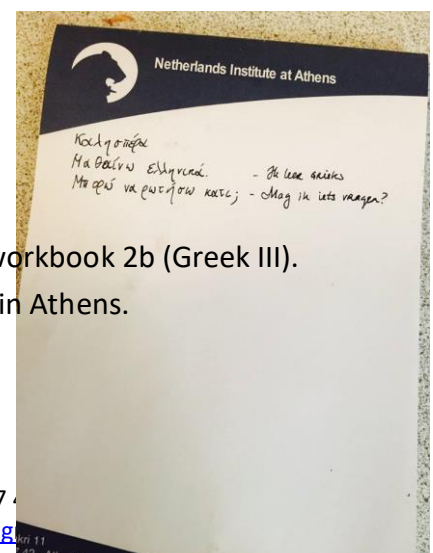 Netherlands Institute at Athens
Καλησπέρα
Μαθαίνω ελληνικά. - Ik leer grieks
Μπορώ να ρωτήσω κάτι; - Mag ik iets vragen?
workbook 2b (Greek III).
in Athens.
7
kri 11